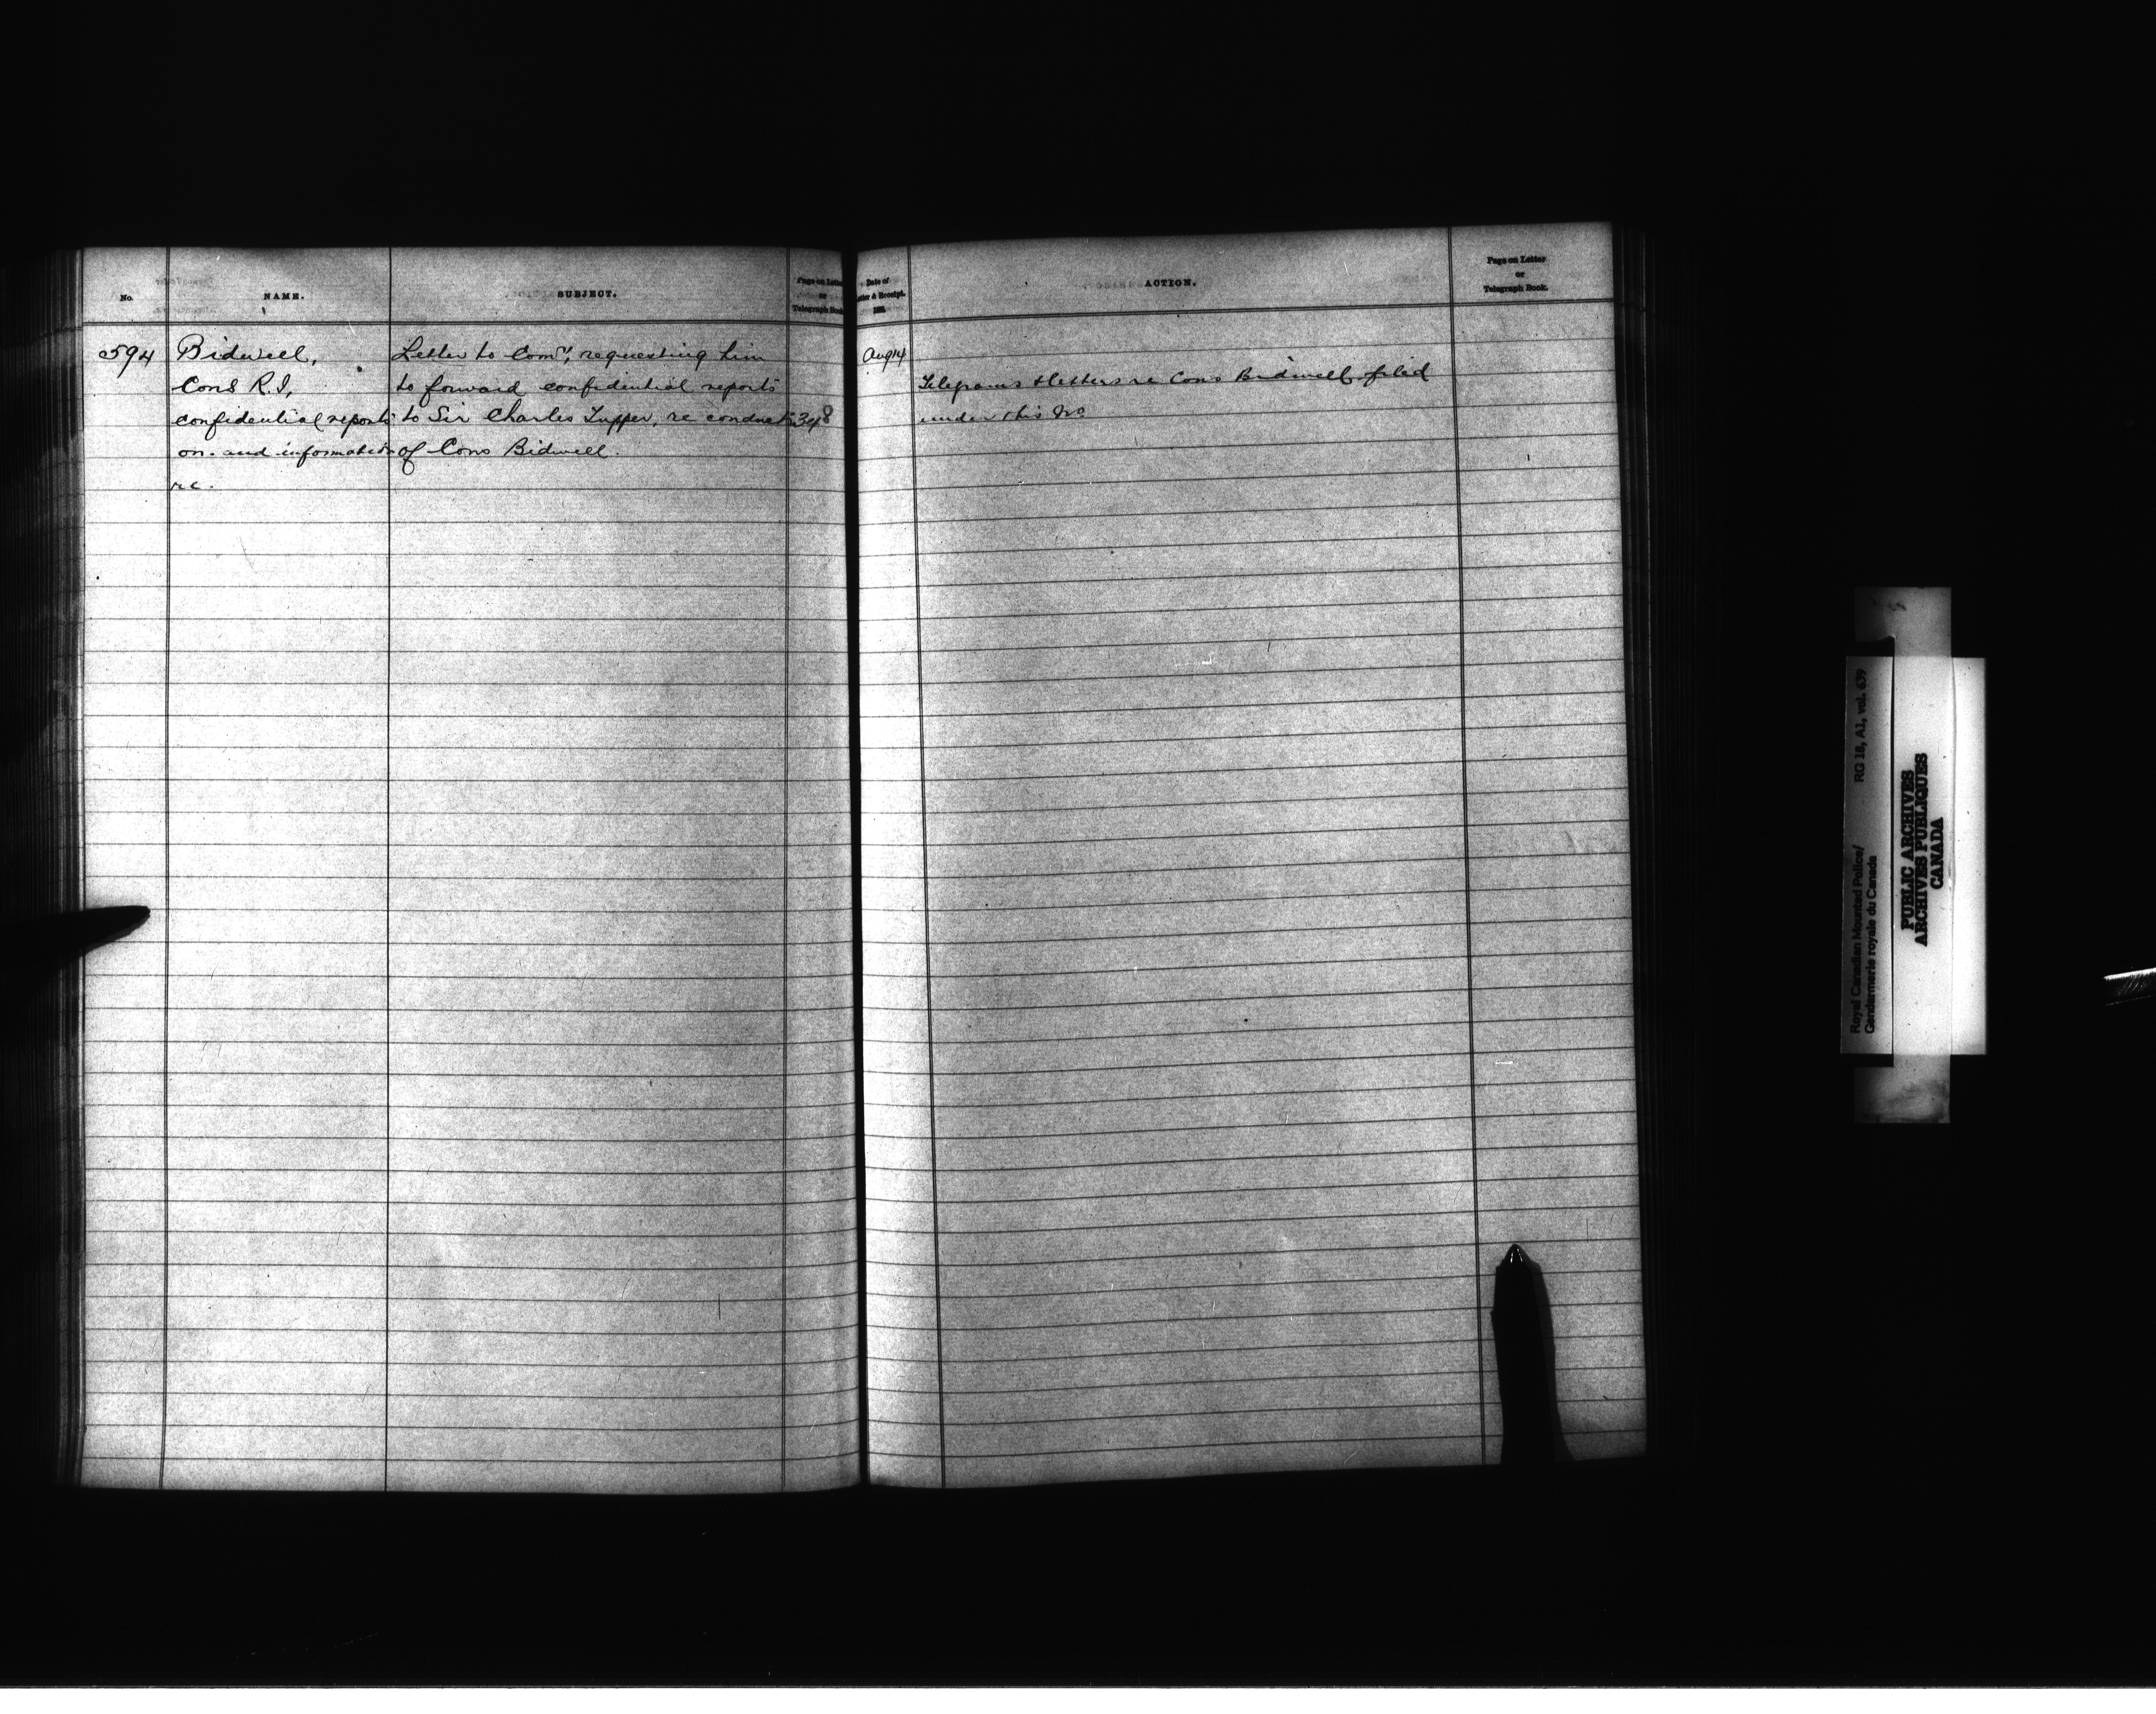 No.
NAME.
SUBJECT.
Page on Letter
or
Telegraph Book
594
Bidwell,
Cons R.I,
confidential reports
on. and information
re.
Letter to Comr, requesting him
to forward confidential reports
to Sir Charles Tupper, re conduct
of Cons Bidwell.
348
Date of
Letter & Receipt.
188
ACTION.
Page on Letter
or
Telegraph Book.
Aug 14
Telegrams & letters re Cons Bidwell filed
under this No
Royal Canadian Mounted Police/ RG 18, A1, vol. 639
Gendarmerie royale du Canada
PUBLIC ARCHIVES
ARCHIVES PUBLIQUES
CANADA